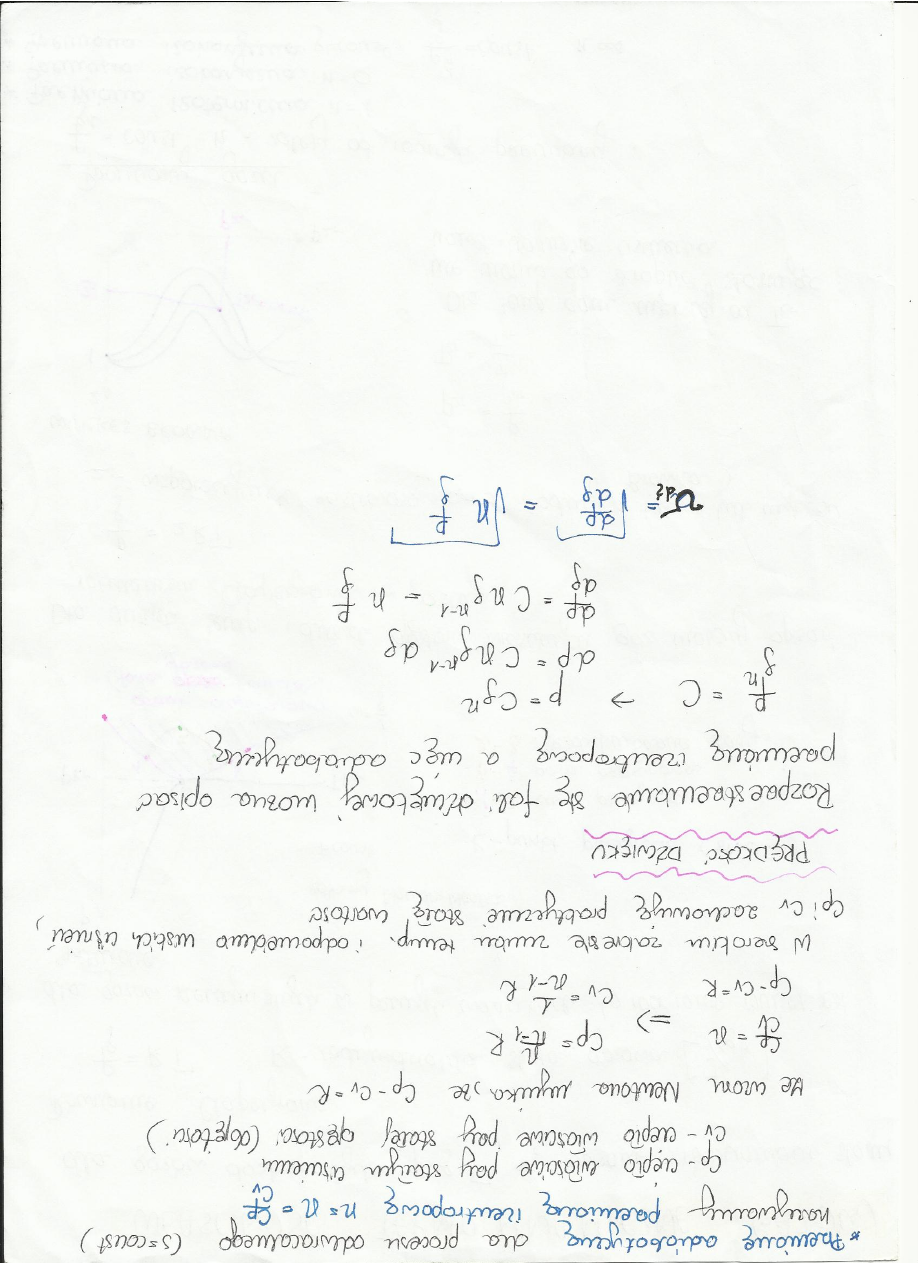 * Przemianę adiabatyczną dla procesu odwracalnego (s=const)
nazywamy przemianą izentropową n = ϰ = cp/cv
cp - ciepło właściwe przy stałym ciśnieniu
cv - ciepło właściwe przy stałej gęstości (objętości)
Ze wzoru Newtona wynika, że cp - cv = R
cp/cv = ϰ ⇒ cp = ϰ/(ϰ-1) R
cp - cv = R cv = 1/(ϰ-1) R
W szerokim zakresie zmian temp. i odpowiednio niskich ciśnień,
cp i cv zachowują praktycznie stałą wartość
PRĘDKOŚĆ DŹWIĘKU
Rozprzestrzenianie się fali dźwiękowej można opisać
przemianą izentropową a więc adiabatyczną
p/ρ^ϰ = C → p = Cρ^ϰ
dp = Cϰρ^(ϰ-1) dρ
dp/dρ = Cϰρ^(ϰ-1) = ϰ p/ρ
= √(dp/dρ) = √(ϰ p/ρ)